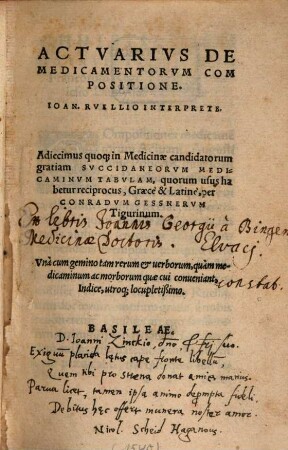 ACTVARIVS DE
MEDICAMENTORVM COM
POSITIONE.
IOAN. RVELLIO INTERPRETE.
Adiecimus quoqȝ in Medicinæ candidatorum
gratiam SVCCIDANEORVM MEDI-
CAMINVM TABVLAM, quorum usus ha
betur reciprocus, Græcè & Latinè, per
CONRADVM GESSNERVM
Tigurinum.
Ex libris Joannis Georgii à Bingen
Medicinæ Doctoris.
constab.
Vnà cum gemino tam rerum & uerborum, quàm me
dicaminum ac morborum quæ cui conueniant,
Indice, utroqȝ locupletißimo.
BASILEAE.
D. Joanni Zinckio, dno & suo.
Exiguũ placida latus cape fronte libellũ,
Quem tibi pro strena donat amica manus.
Parua licet, tamen ipsa animo deprompta fideli.
Debitus hęc offert munera noster amor.
Nicol. Scheid Haganous.